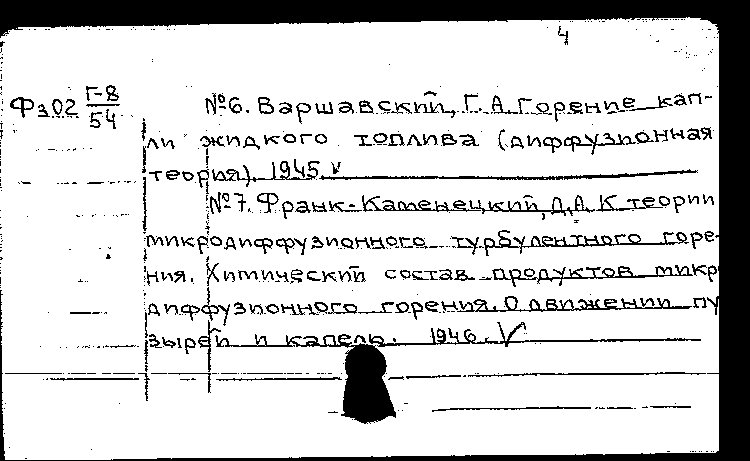 4
Фз02 Г-8/54 №6. Варшавский, Г. А. Горение кап-
ли жидкого топлива (диффузионная
теория). 1945. V
№7. Франк-Каменецкий, Д. А. К теории
микродиффузионного турбулентного горе-
ния. Химический состав продуктов микр
диффузионного горения. О движении пу
зырей и капель. 1946. V